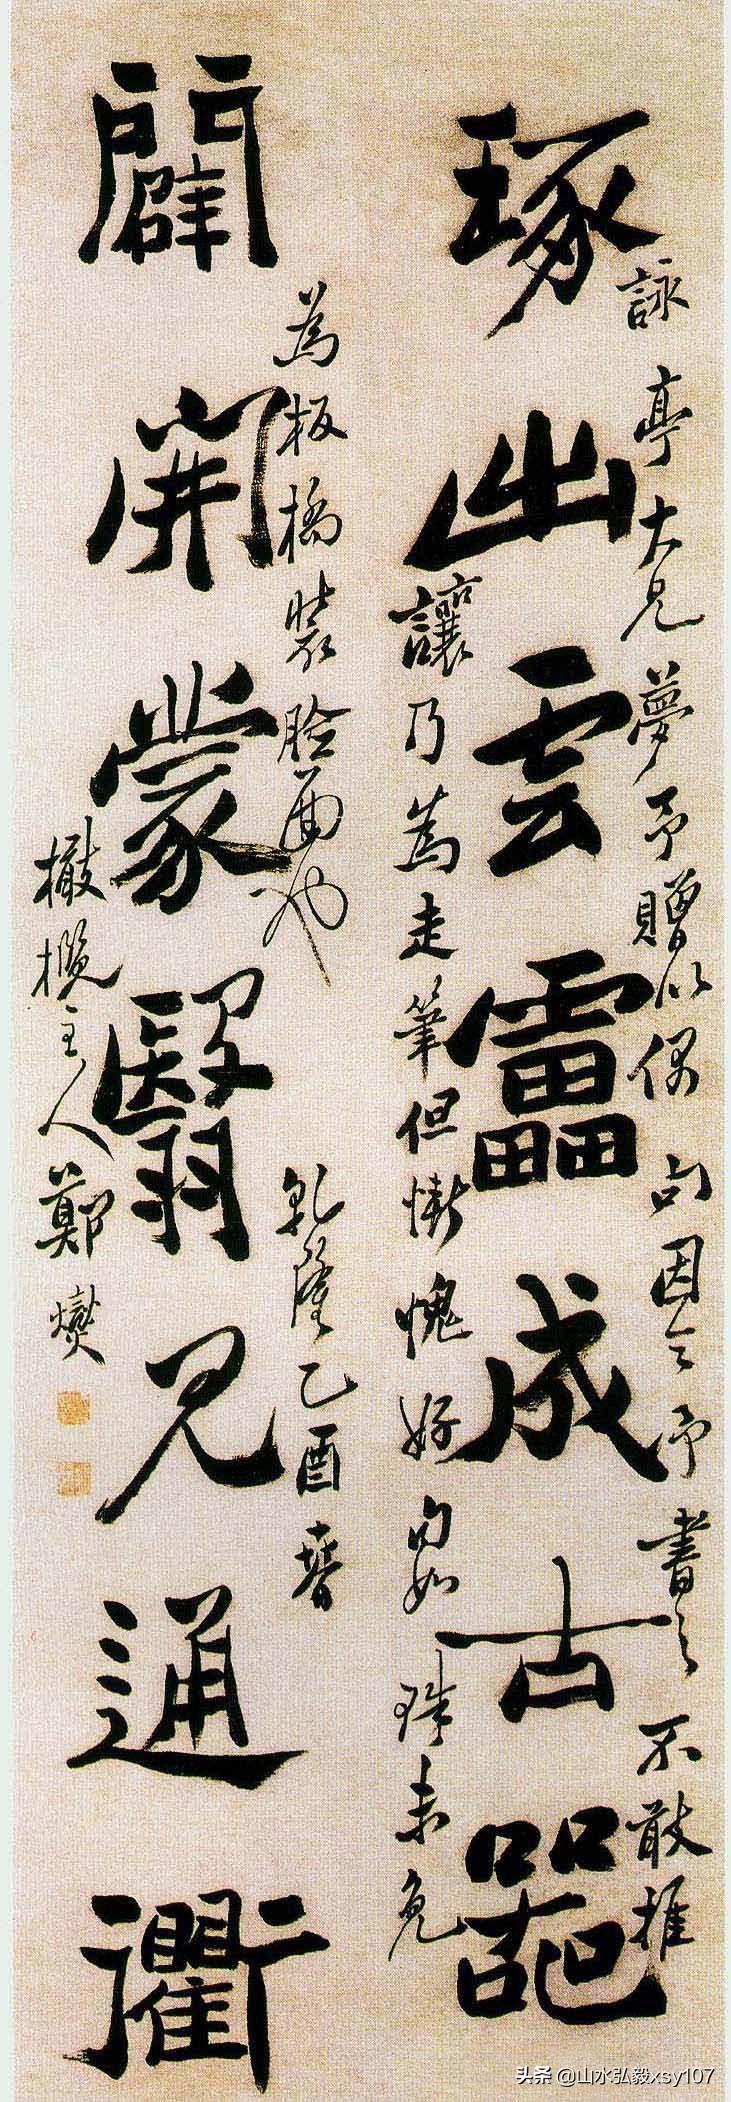 琢出雲靁成古器
闢開蒙翳見通衢
詠亭大兄夢予贈以偶句因令予書之不敢推
讓乃為走筆但慚愧好句如珠未免
為板橋裝臉面也 乾隆乙酉春
橄欖主人鄭燮
头条 @山水弘毅xsy107